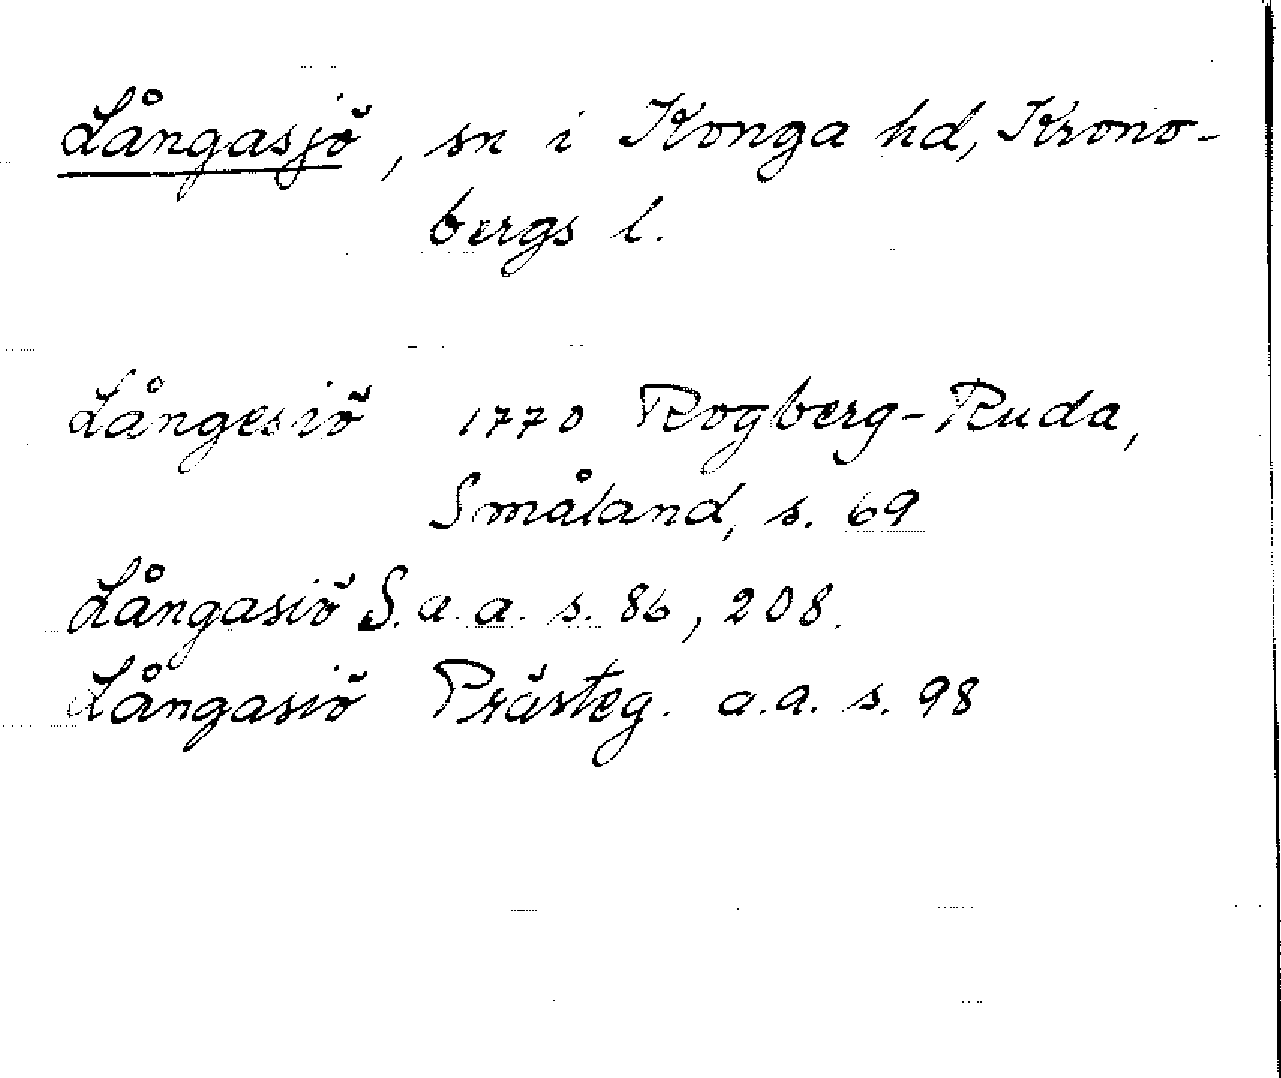 Långasjö, sn i Konga hd, Krono-
bergs l.
Långesiö 1770 Rogberg-Ruda,
Småland, s. 69
Långasiö S. a. a. s. 86, 208.
Långasiö Prästeg. a.a. s. 98